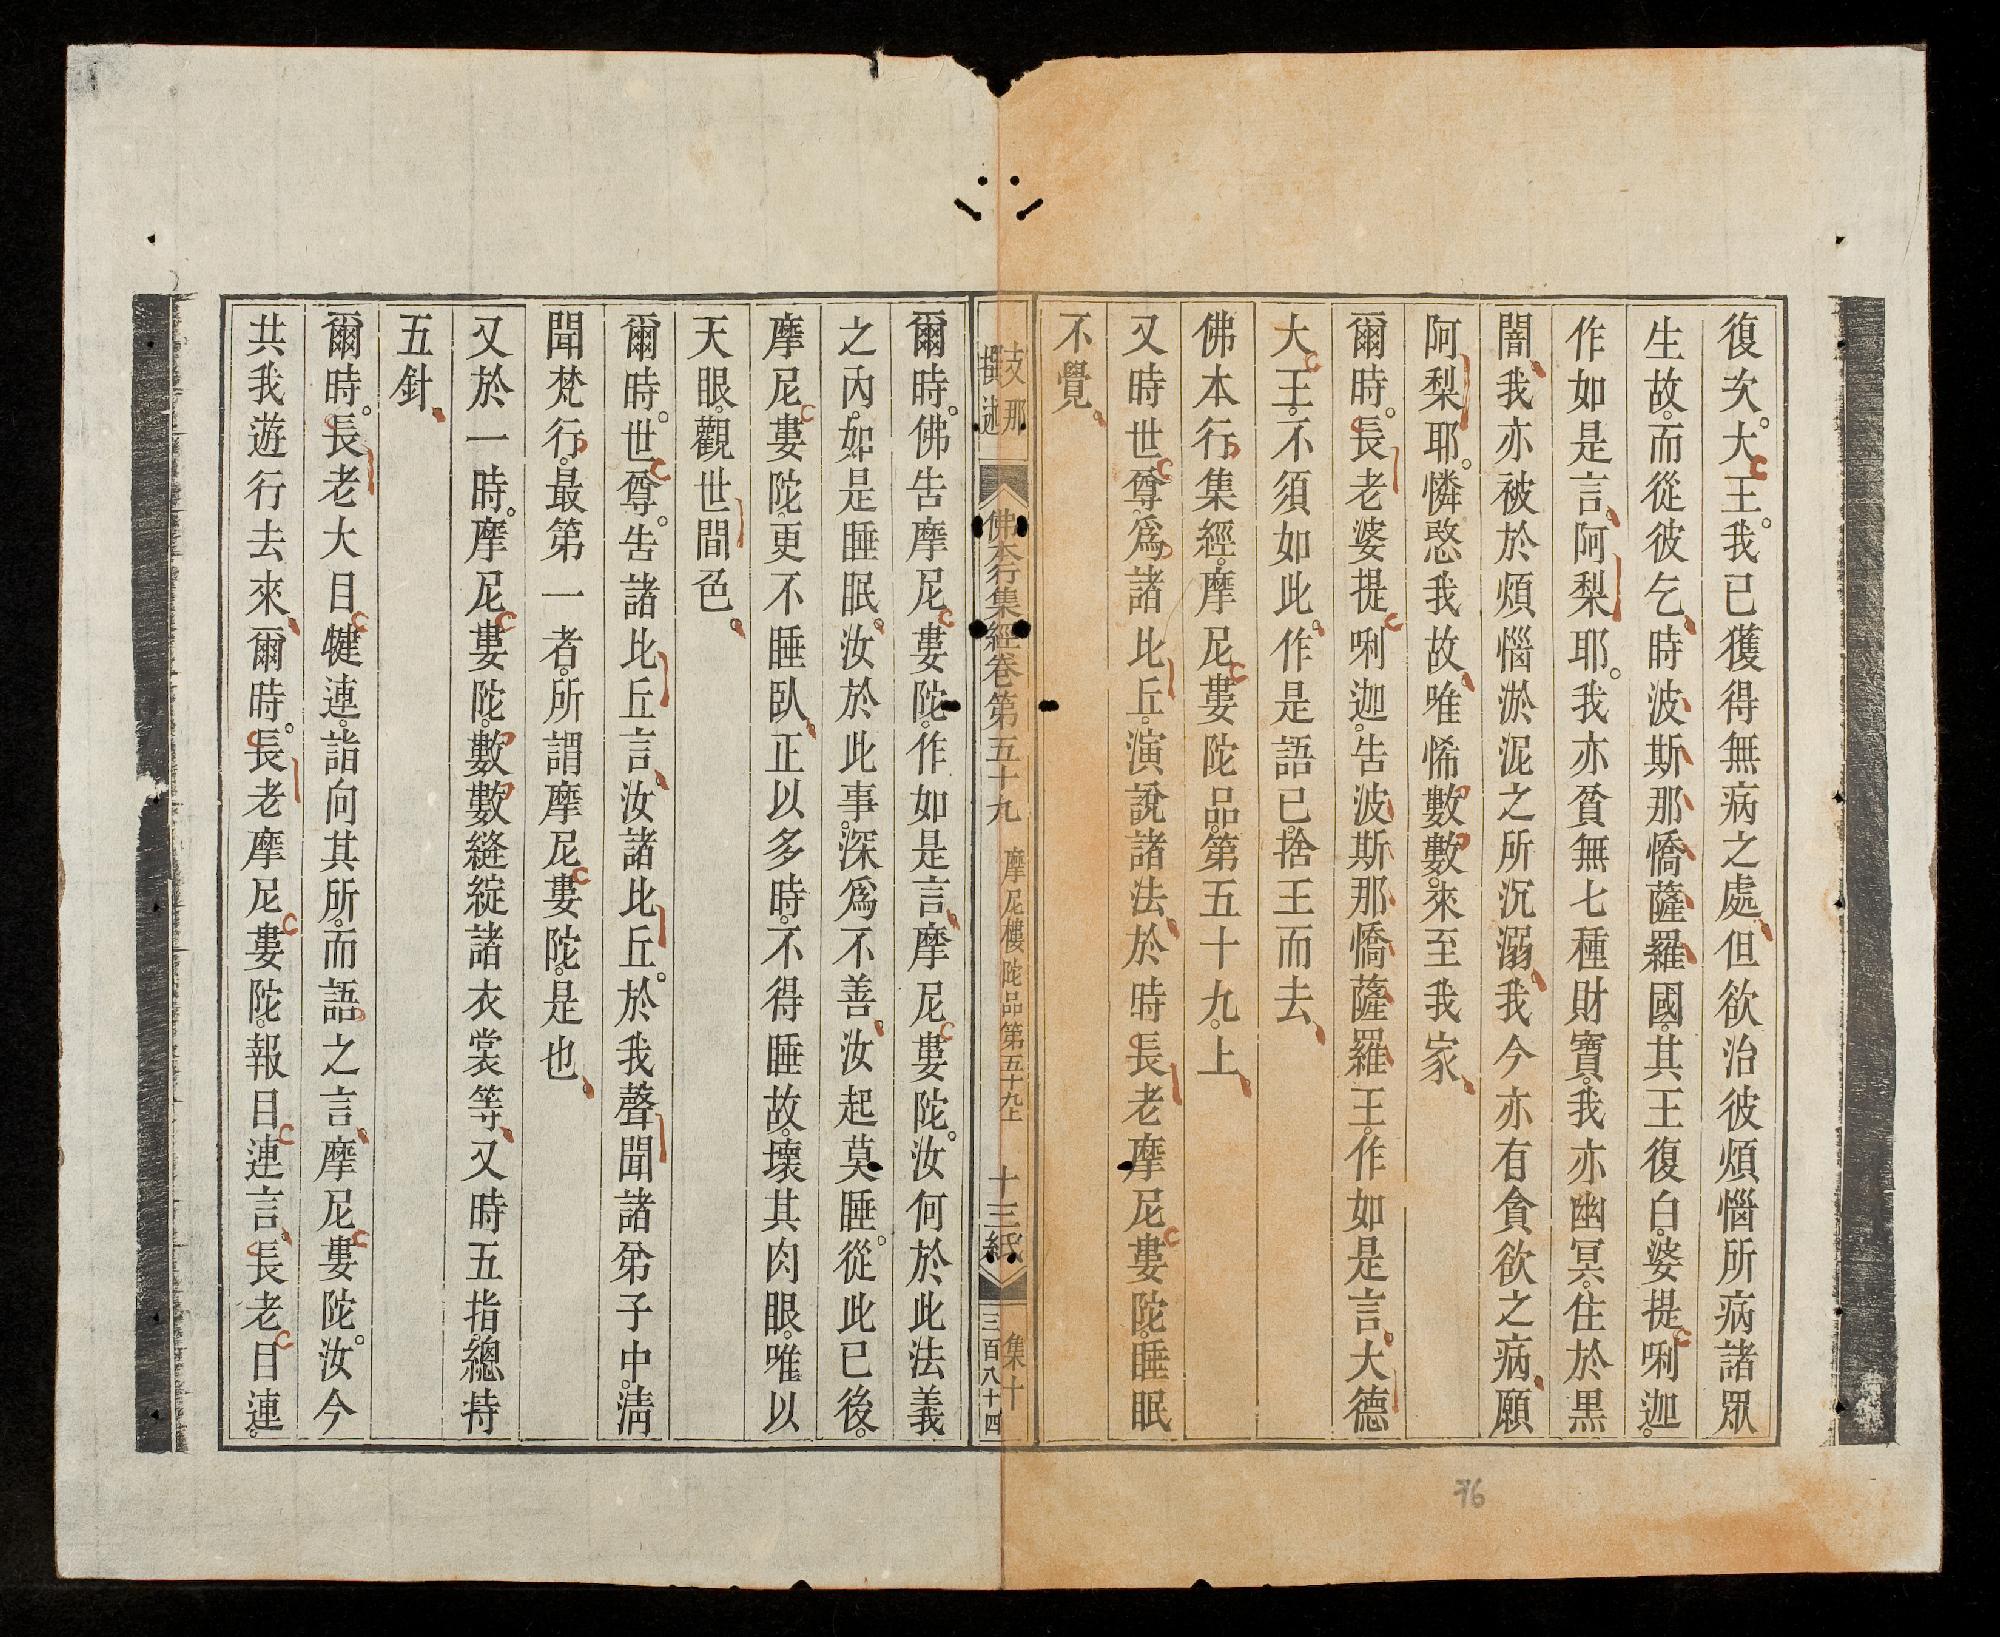 復次。大王。我已獲得無病之處、但欲治彼煩惱所病諸眾
生故。而從彼乞、時波斯那憍薩羅國。其王復白。婆提唎迦。
作如是言、阿梨耶。我亦貧無七種財寶。我亦幽冥。住於黑
闇、我亦被於煩惱淤泥之所沉溺、我今亦有貪欲之病、願
阿梨耶。憐愍我故、唯悕數數。來至我家、
爾時。長老婆提唎迦。告波斯那憍薩羅王。作如是言、大德
大王。不須如此。作是語已。捨王而去、
佛本行集經。摩尼婁陀品。第五十九。上、
又時世尊。為諸比丘。演說諸法、於時長老摩尼婁陀。睡眠
不覺、
支那
撰述
佛本行集經卷第五十九 摩尼樓陀品第五十九上 十三紙
集十
三百八十四
爾時。佛告摩尼婁陀。作如是言、摩尼婁陀。汝何於此法義
之內。如是睡眠、汝於此事。深為不善、汝起莫睡。從此已後。
摩尼婁陀。更不睡臥、正以多時。不得睡故。壞其肉眼。唯以
天眼。觀世間色。
爾時。世尊。告諸比丘言、汝諸比丘。於我聲聞諸弟子中。清
聞梵行。最第一者。所謂摩尼婁陀。是也、
又於一時。摩尼婁陀。數數縫綻諸衣裳等、又時五指。總持
五針、
爾時。長老大目犍連。詣向其所。而語之言、摩尼婁陀。汝今
共我遊行去來、爾時。長老摩尼婁陀。報目連言、長老目連。
76